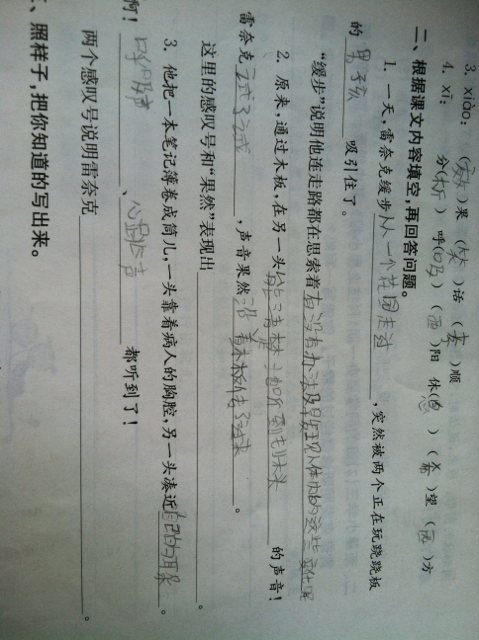 3. xiào：（效）果 （笑）话 （孝）顺
4. xī： 分（析） 呼（吸） （西）阳 休（息） （希）望 （ ）方
二、根据课文内容填空，再回答问题。
1. 一天，雷奈克缓步从一个花园走过，突然被两个正在玩跷跷板
的男孩吸引住了。
“缓步”说明他连走路都在思索着有没有办法及早发现人体内的这些
2. 原来，通过木板，在另一头能听到 的声音！
雷奈克试了试，声音果然沿着木板传了过来。
这里的感叹号和“果然”表现出。
3. 他把一本笔记簿卷成筒儿，一头靠着病人的胸腔，另一头凑近自己的耳朵。
啊！呼吸声、心跳声都听到了！
两个感叹号说明雷奈克。
三、照样子，把你知道的写出来。